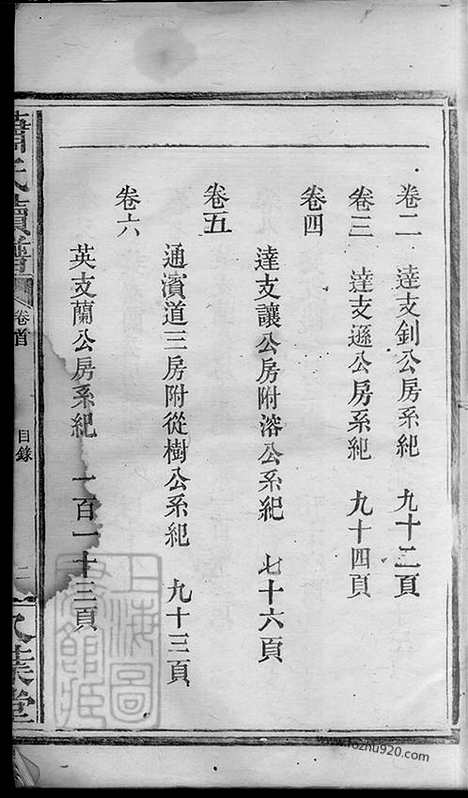 卷二　達支釗公房系紀　九十二頁
卷三　達支遜公房系紀　九十四頁
卷四
達支讓公房附溶公系紀　七十六頁
卷五
通濱道三房附從樹公系紀　九十三頁
卷六
英支蘭公房系紀　一百一十三頁
蕭氏續譜
卷首
目錄
二
乂業堂
上海圖
書館藏
www.fozhu920.com